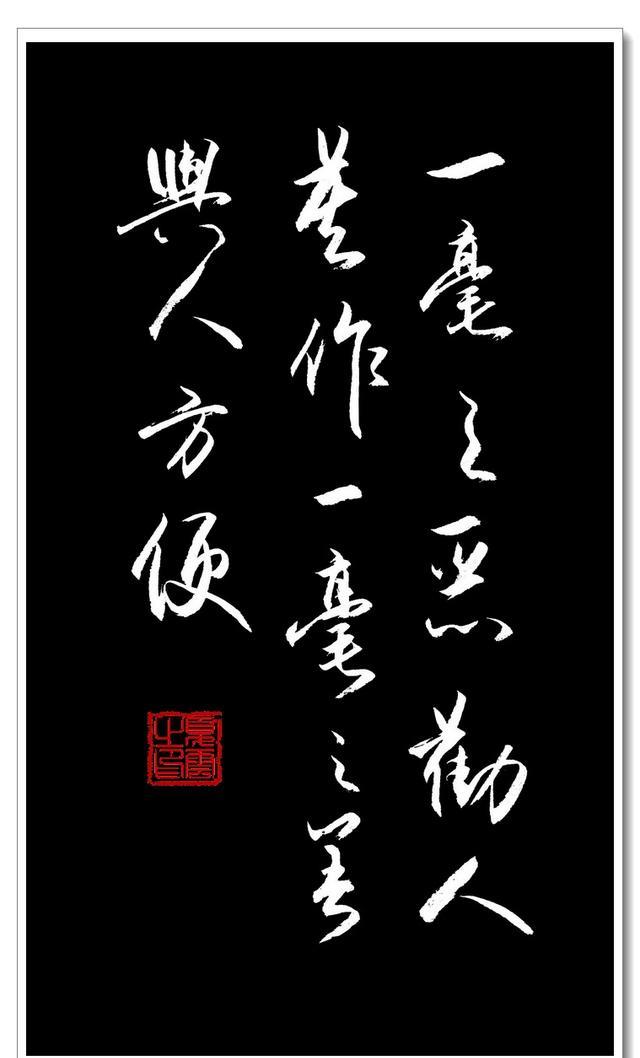 一毫之惡勸人
莫作一毫之善
與人方便